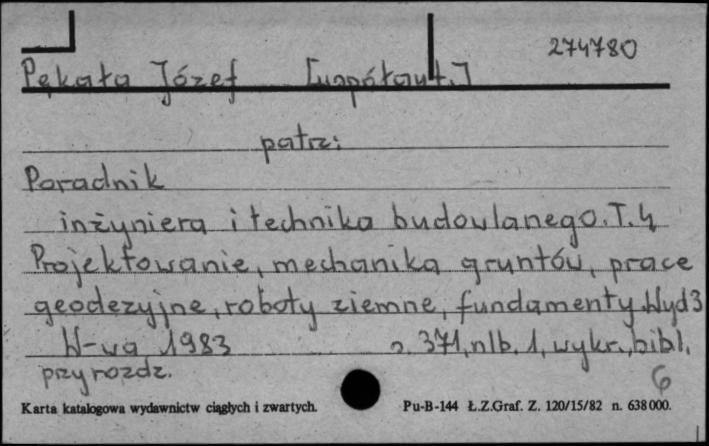 274780
Pękała Józef [współaut.]
patrz:
Poradnik
inżyniera i technika budowlanego. T. 4
Projektowanie, mechanika gruntów, prace
geodezyjne, roboty ziemne, fundamenty. Wyd 3
W-wa 1983 s. 371, nlb. 1, wykr., bibl.
przy rozdz. 6
Karta katalogowa wydawnictw ciągłych i zwartych. Pu-B-144 Ł.Z.Graf. Z. 120/15/82 n. 638000.